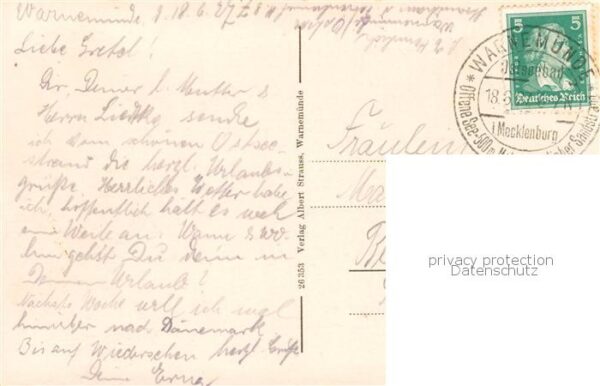 Warnemünde, d. 18.6.27
Liebe Gretel!
Dir, Deiner l. Mutter &
Herrn Liedtke sende
ich vom schönen Ostsee-
strand die herzl. Urlaubs-
grüße. Herrliches Wetter habe
ich, hoffentlich hält es noch
eine Weile an. Wann & wo-
hin gehst Du denn in
Urlaub?
Nächste Woche will ich mal
hinüber nach Dänemark.
Bis auf Wiedersehen herzl. Grüße
Deine Erna
26353 Verlag Albert Strauss, Warnemünde
5 5
Deutsches Reich
WARNEMÜNDE
Ostseebad
18.6
i Mecklenburg
Offene See-500m
Fräulein
privacy protection
Datenschutz